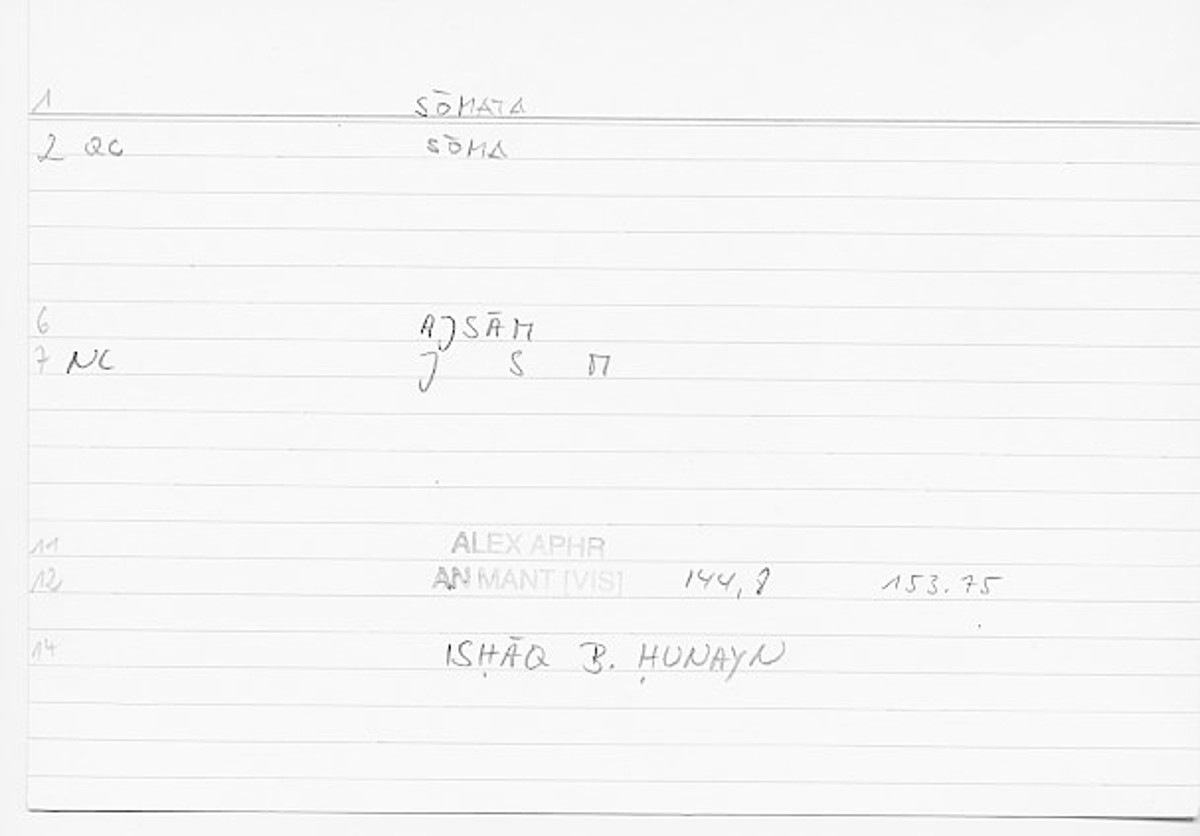 1 SŌMATA
2 QC SŌMA
6 AJSĀM
7 NC J S M
11 ALEX APHR
12 AN MANT [VIS] 144,9 153.75
14 ISḤĀQ B. ḤUNAYN